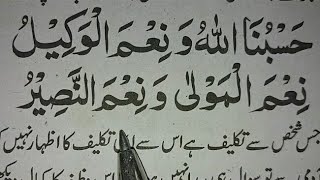 حَسْبُنَا اللهُ وَ نِعْمَ الْوَكِيْلُ
نِعْمَ الْمَوْلٰى وَ نِعْمَ النَّصِيْرُ
جس شخص سے تکلیف ہے اس سے اپنی تکلیف کا اظہار نہیں